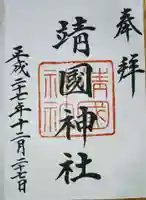 奉拝
靖國神社
靖國
神社
平成二十七年十二月二十七日